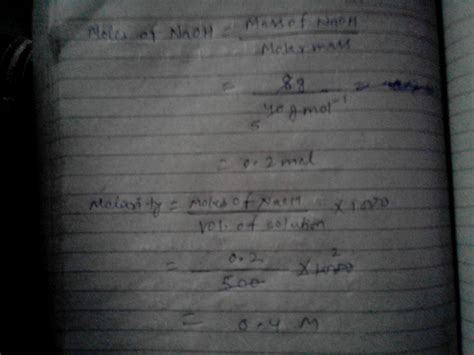 Moles of NaOH = Mass of NaOH
Molar mass
= 8g
40 g mol⁻¹ =
5
= 0.2 mol
Molarity = Moles of NaOH × 1000
Vol. of solution
2
= 0.2 × 1000
500
= 0.4 M